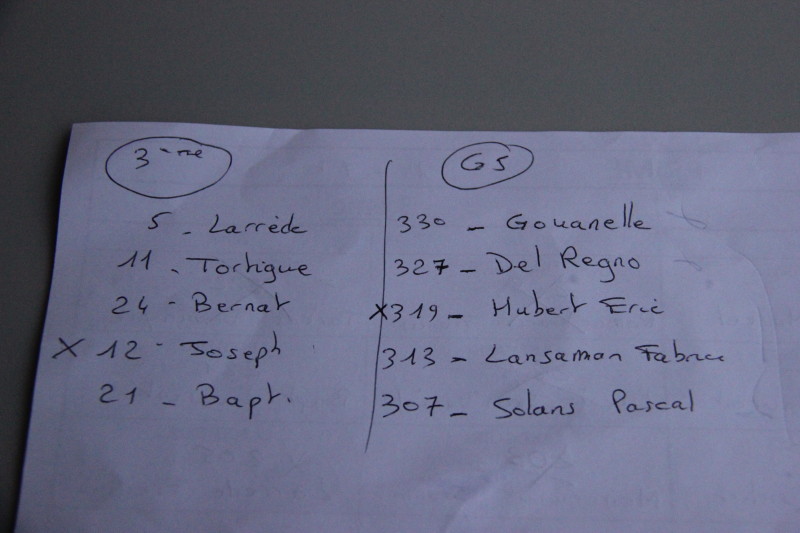 3ème
5 - Larrède
11 - Tortigue
24 - Bernat
X 12 - Joseph
21 - Bapt.
GS
330 - Gouanelle
327 - Del Regno
X 319 - Hubert Eric
313 - Lansaman Fabrice
307 - Solans Pascal